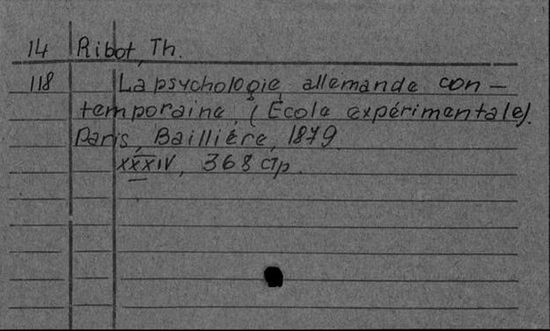 14 Ribot, Th.
118 La psychologie allemande con-
temporaine, (École expérimentale).
Paris, Baillière, 1879.
XXXIV, 368 стр.